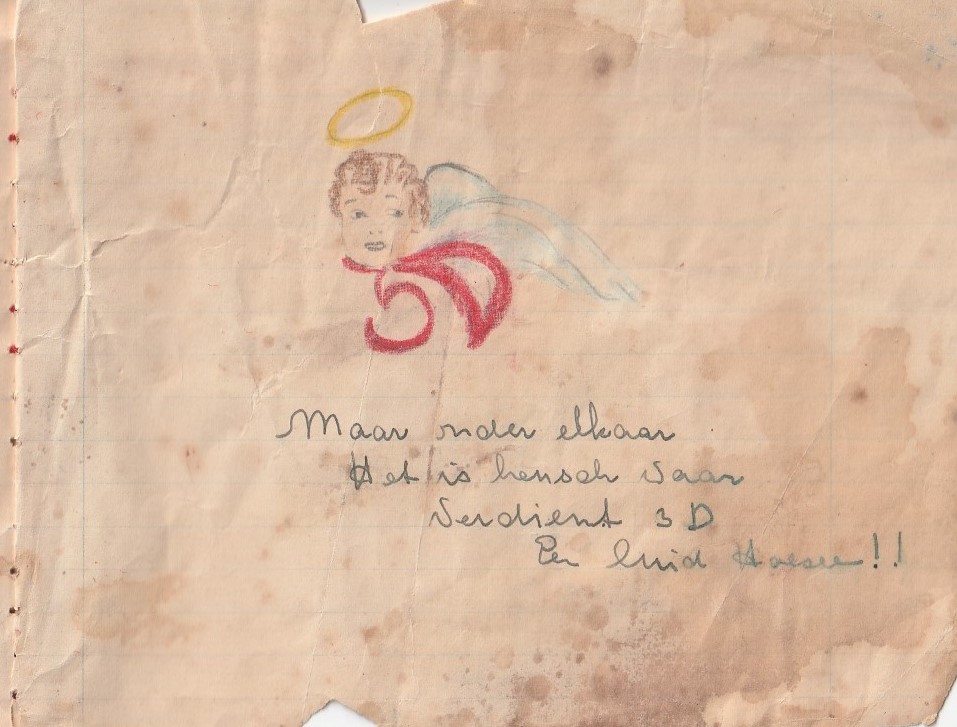 Maar onder elkaar
Het is heusch waar
Verdient 3 D
Een luid Hoesee!!